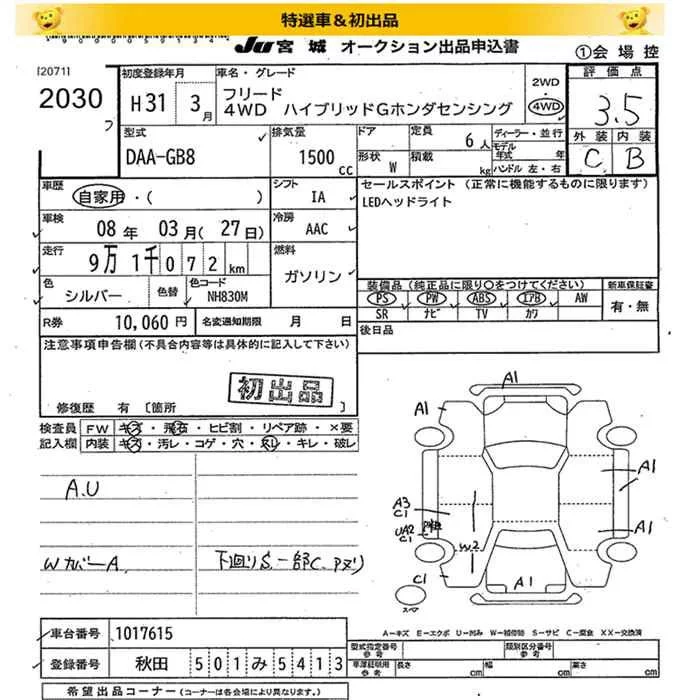 特選車＆初出品
Ju 宮城 オークション出品申込書
①会場控
[2071]
2030
フ
初度登録年月
H31 3月
車名・グレード
フリード
4WD ハイブリッドGホンダセンシング
2WD
・
4WD
評価点
3.5
外装 内装
C B
型式
DAA-GB8
排気量
1500cc
ドア
定員
6人
ディーラー・並行
モデル年式 年
形状 W
積載 kg
ハンドル 左・右
車歴
自家用・( )
シフト
IA
セールスポイント (正常に機能するものに限ります)
LEDヘッドライト
車検
08年 03月(27日)
冷房
AAC
走行
9万1千072km
燃料
ガソリン
色
シルバー
色替
色コード
NH830M
装備品(純正品に限り○をつけてください)
新車保証書
PS PW ABS エアB AW
SR ナビ TV カワ
有・無
R券
10,060円
名変通知期限 月 日
後日品
注意事項申告欄(不具合内容等は具体的に記入して下さい)
初出品
修復歴 有 [箇所 ]
検査員記入欄
FW キズ・飛石・ヒビ割・リペア跡・×要
内装 キズ・汚レ・コゲ・穴・スレ・キレ・破レ
A.U
WカバーA
下廻りS.一部C、Pヌリ
A1
A1
A1
A3
C1
UA2
C1
A1
W2
C1
A1
スペア
A－キズ E－エクボ U－凹み W－補修跡 S－サビ C－腐食 XX－交換済
車台番号
1017615
登録番号
秋田 501み5413
型式指定番号 参考
類別区分番号 参考
車庫証明用 参考
長さ cm 幅 cm 高さ cm
希望出品コーナー(コーナーは各会場により異なります。)